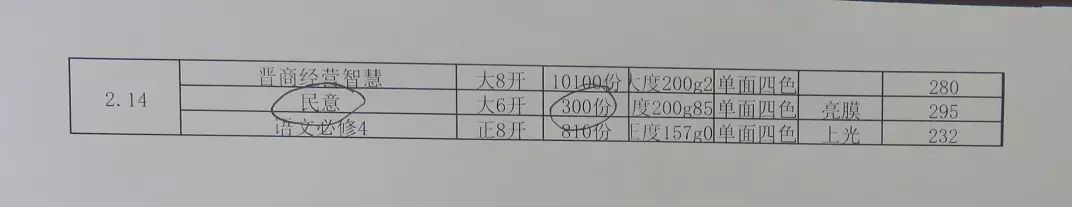 2.14
晋商经营智慧 大8开 10100份 大度200g2 单面四色 280
民意 大6开 300份 度200g85 单面四色 亮膜 295
语文必修4 正8开 810份 正度157g0 单面四色 上光 232